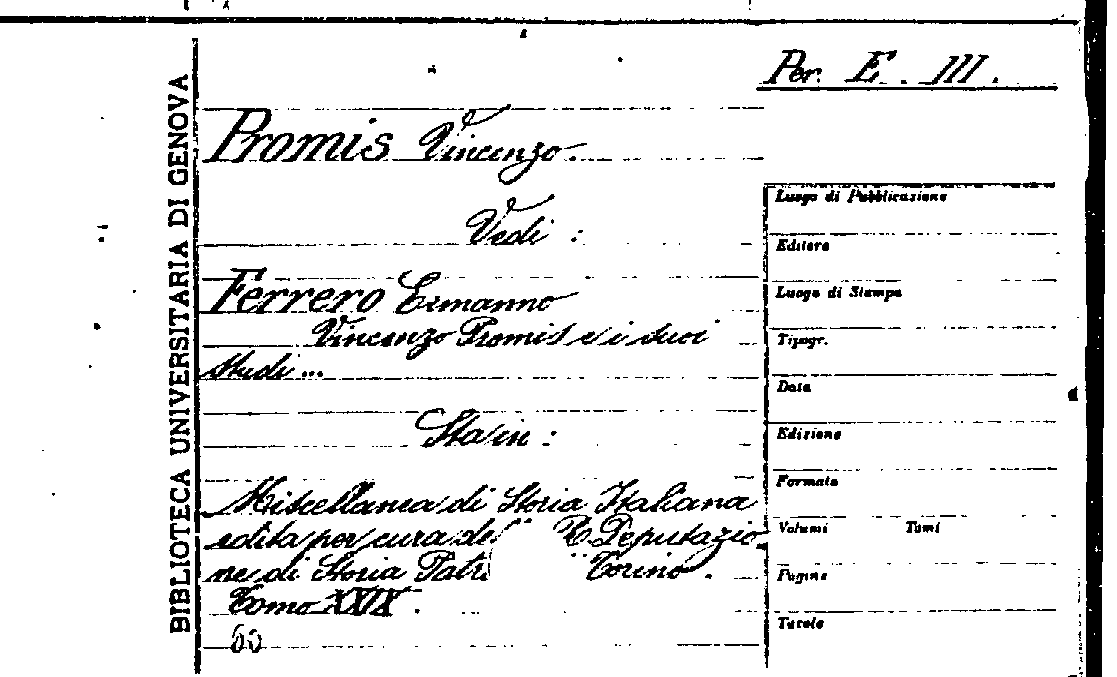 Per. E. III.
BIBLIOTECA UNIVERSITARIA DI GENOVA
Promis Vincenzo.
Vedi:
Ferrero Ermanno
Vincenzo Promis e i suoi
studi...
Sta in:
Miscellanea di Storia Italiana
edita per cura del R. Deputazio
ne di Storia Patri Torino.
Tomo XXIX.
60
Luogo di Pubblicazione
Editore
Luogo di Stampa
Tipogr.
Data
Edizione
Formato
Volumi Tomi
Pagine
Tavole